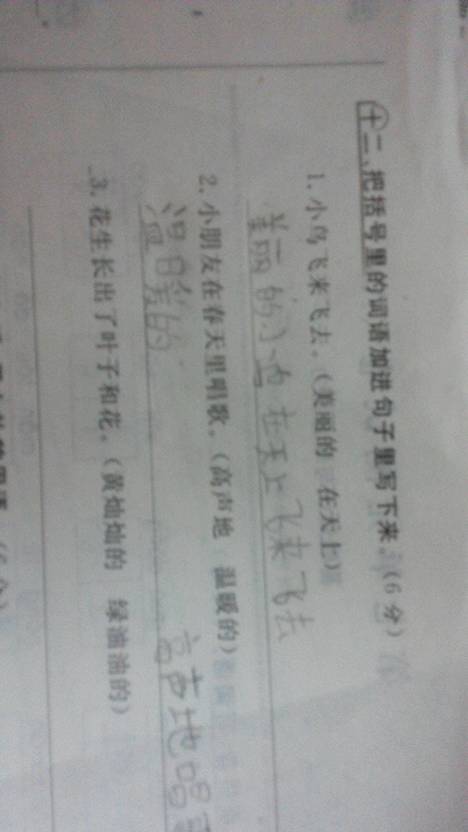 十二、把括号里的词语加进句子里写下来。(6分)
1. 小鸟飞来飞去。(美丽的 在天上)
美丽的小鸟在天上飞来飞去
2. 小朋友在春天里唱歌。(高声地 温暖的)
温暖的 高声地唱
3. 花生长出了叶子和花。(黄灿灿的 绿油油的)